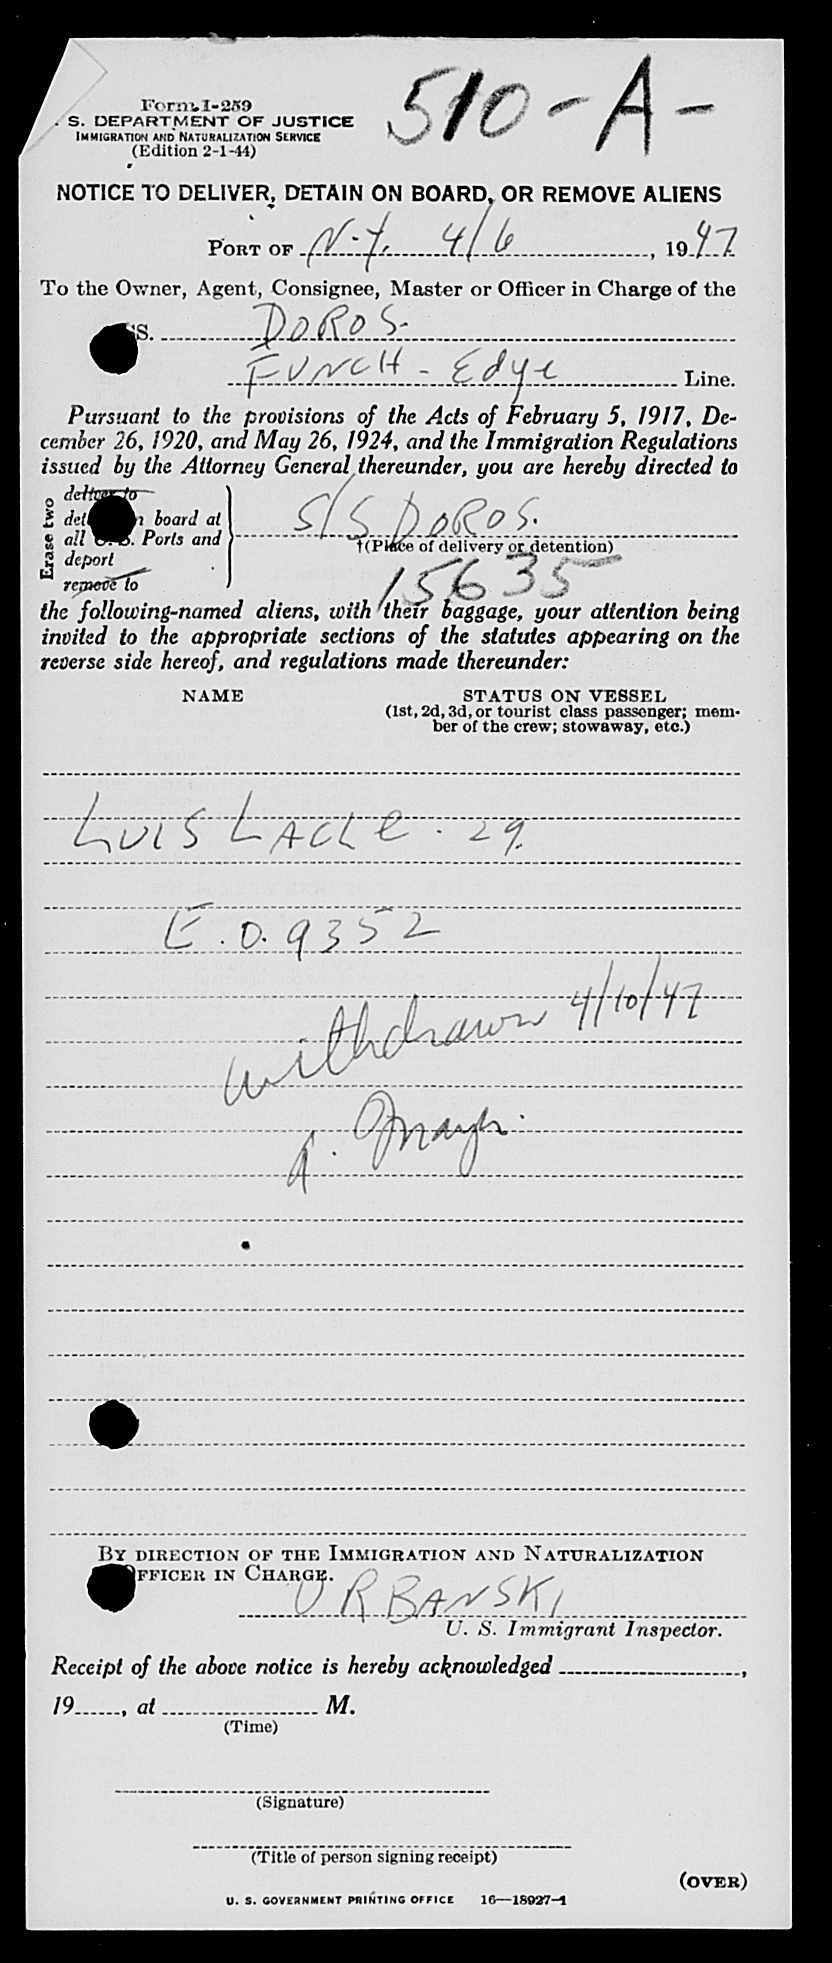 510-A-
Form I-259
. S. DEPARTMENT OF JUSTICE
IMMIGRATION AND NATURALIZATION SERVICE
(Edition 2-1-44)
NOTICE TO DELIVER, DETAIN ON BOARD, OR REMOVE ALIENS
PORT OF N.Y. 4/6, 1947
To the Owner, Agent, Consignee, Master or Officer in Charge of the
S. DOROS.
FUNCH-Edye Line.
Pursuant to the provisions of the Acts of February 5, 1917, De-
cember 26, 1920, and May 26, 1924, and the Immigration Regulations
issued by the Attorney General thereunder, you are hereby directed to
Erase two
deliver to
board at
all Ports and
deport
remove to
S/S DOROS.
†(Place of delivery or detention)
15635
the following-named aliens, with their baggage, your attention being
invited to the appropriate sections of the statutes appearing on the
reverse side hereof, and regulations made thereunder:
NAME STATUS ON VESSEL
(1st, 2d, 3d, or tourist class passenger; mem-
ber of the crew; stowaway, etc.)
LUIS LACLE. 29.
E.O. 9352
withdrawn 4/10/47
BY DIRECTION OF THE IMMIGRATION AND NATURALIZATION
OFFICER IN CHARGE.
URBANSKI
U. S. Immigrant Inspector.
Receipt of the above notice is hereby acknowledged ,
19 , at M.
(Time)
(Signature)
(Title of person signing receipt)
(OVER)
U. S. GOVERNMENT PRINTING OFFICE 16—18927-1